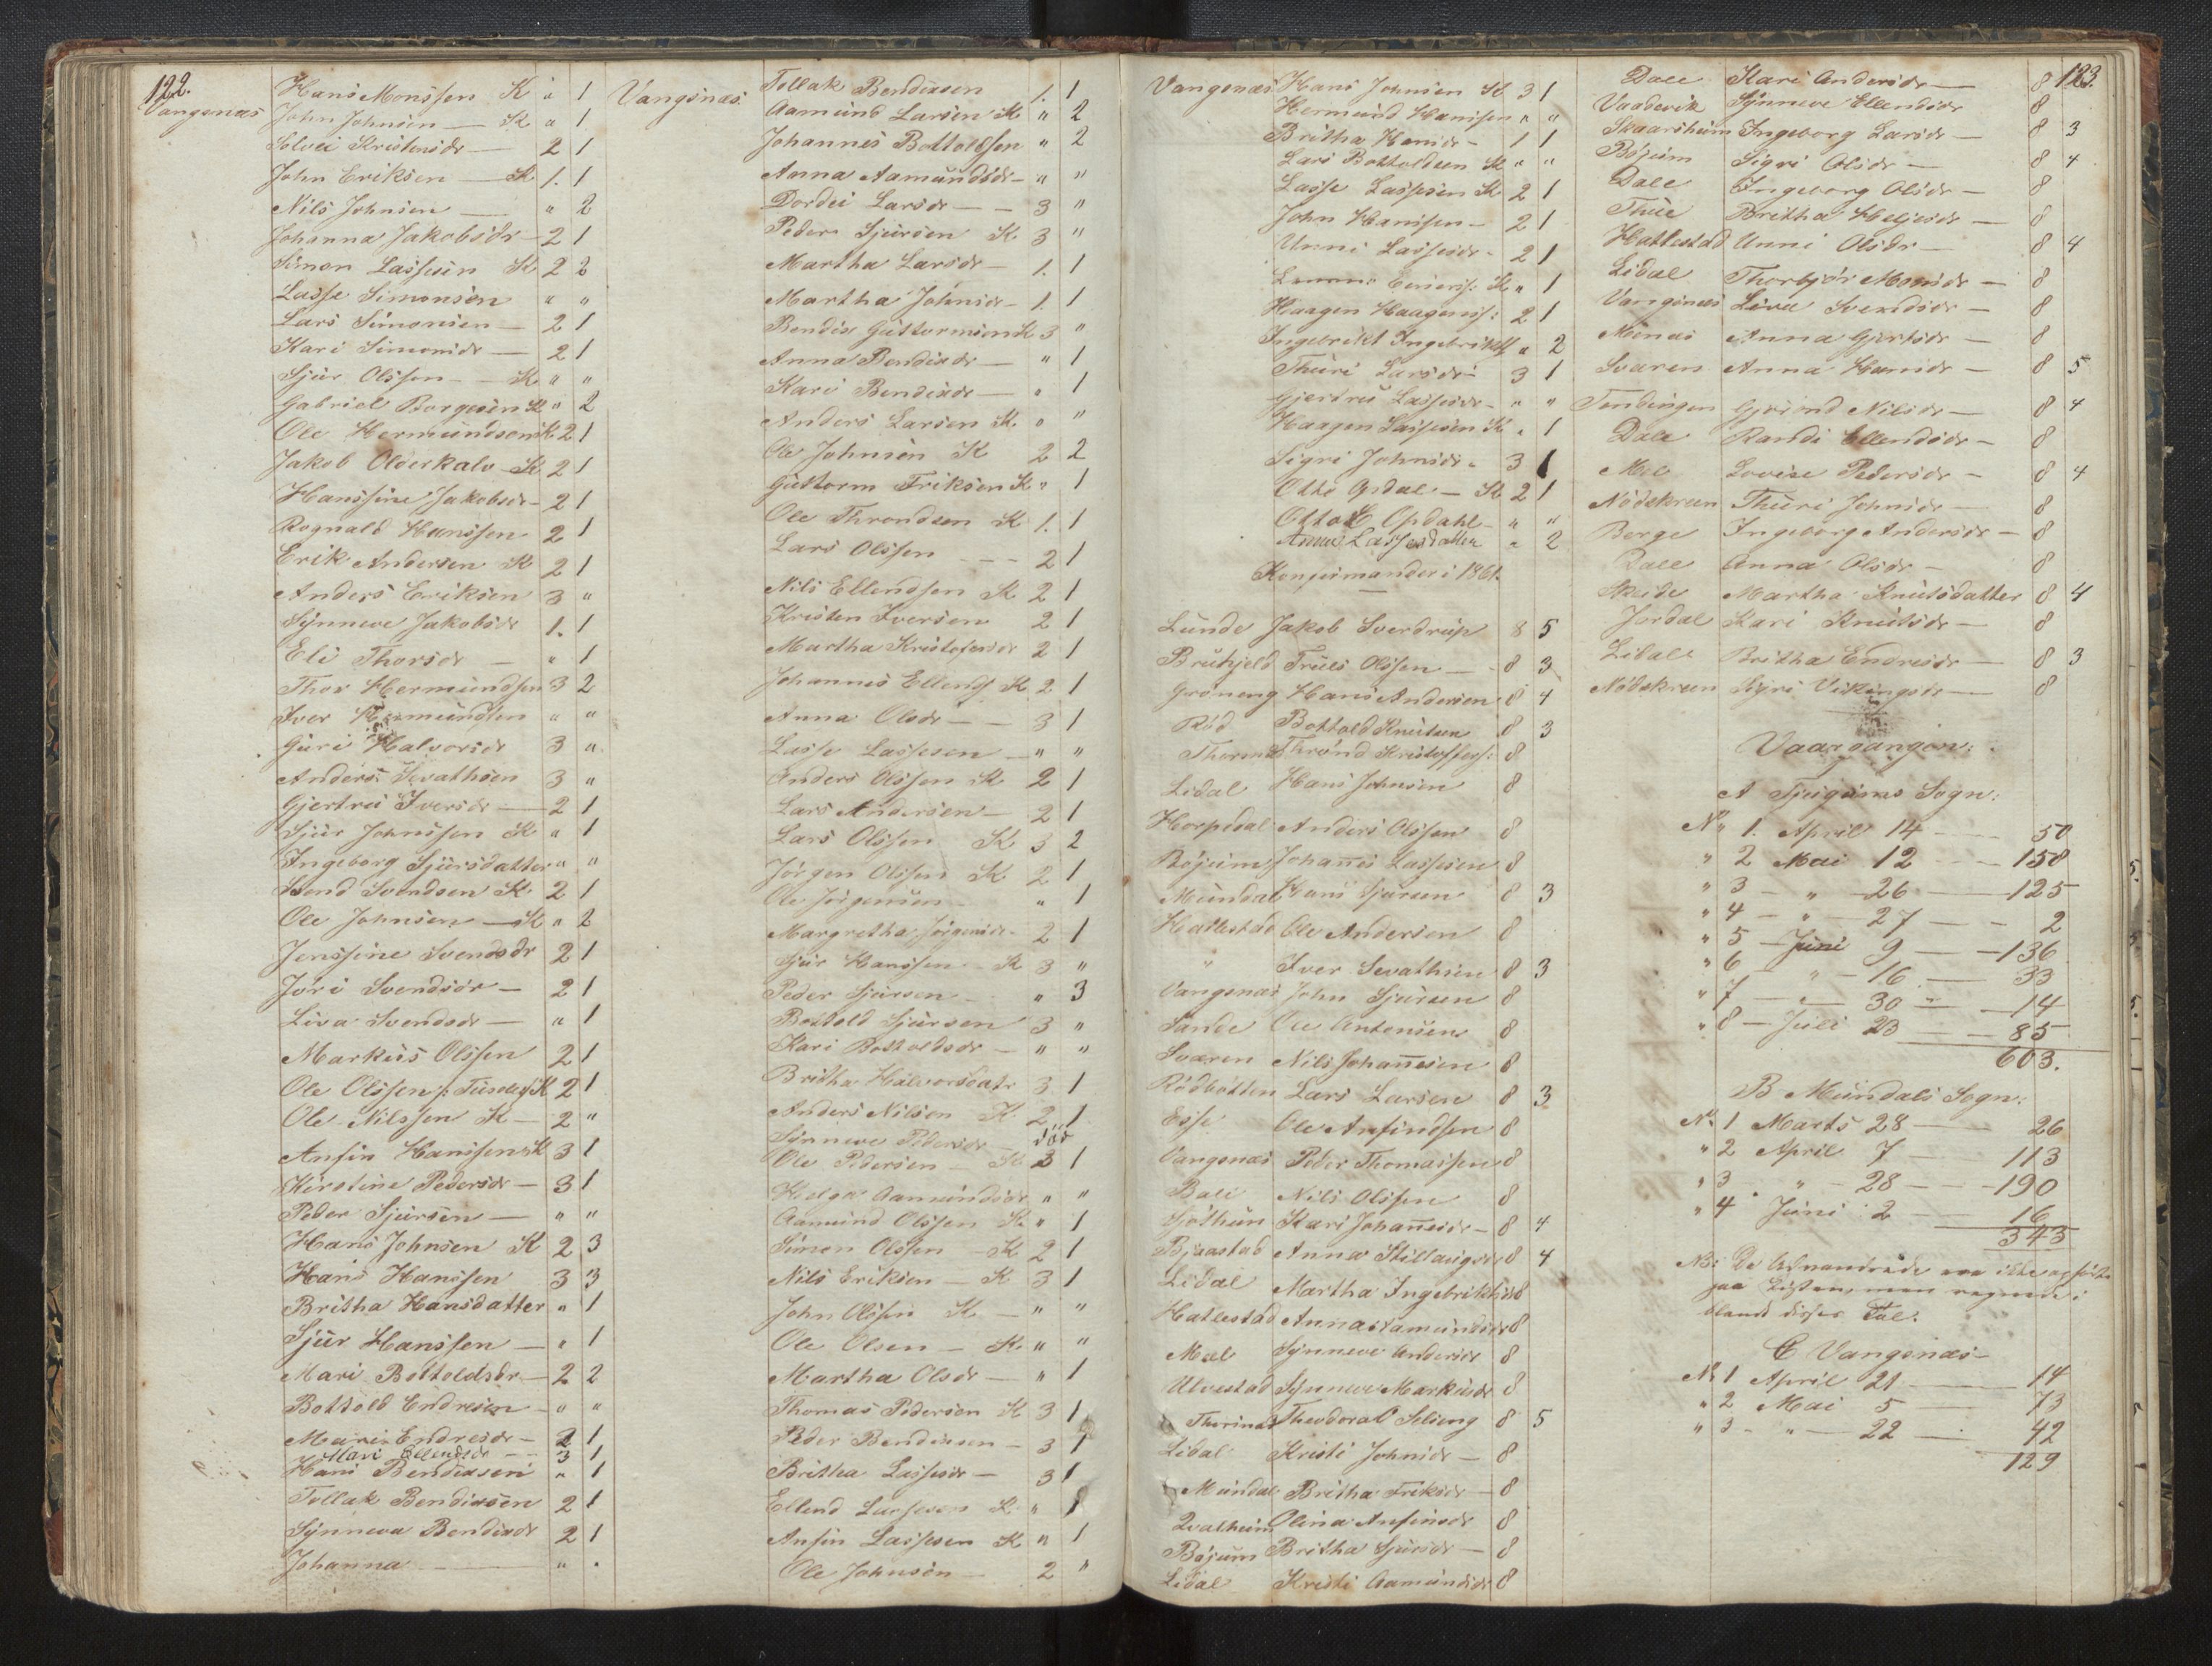 122.
Vangsnæs
Hans Monssen K " 1
John Johnsen — K " 1
Solvei Kristensdr — 2 1
John Eriksen — K 1. 1
Nils Johnsen — " 2
Johanna Jakobsdr — 2 1
Simon Lassesen K 2 2
Lasse Simonsen " "
Lars Simonsen — 2 1
Kari Simonsdr — 2 1
Sjur Olssen — K " "
Gabriel Borgesen K " 2
Ole Hermundsen K 2 1
Jakob Olderkalv K 2 1
Hanssine Jakobsdr — 2 1
Rognald Hanssen 2 1
Erik Andersen K 2 1
Anders Eriksen 3 "
Synneve Jakobsdr 1. 1
Eli Thorsdr — " 1
Thor Hermundsen 3 2
Iver Hermundsen " "
Guri Halvorsdr 3 "
Anders Sevathsen 3 "
Gjertru Iversdr — 2 1
Sjur Johnssen K " 1
Ingeborg Sjursdatter " "
Svend Svendsen K 2 1
Ole Johnsen — K " 2
Jenssine Svendsdr 2 1
Jori Svendsdr — 2 1
Liva Svendsdr — " 1
Markus Olssen 2 1
Ole Olssen K 2 1
Ole Nilssen K — 2 "
Anfin Hanssen K 3 1
Kirstine Pedersdr — 3 1
Peder Sjursen — " "
Hans Johnsen K 2 3
Hans Hanssen 3 3
Britha Hansdatter " 1
Sjur Hanssen — " 1
Mari Bottoldsdr — 2 2
Bottold Endresen — " "
Mari Endresdr — 2 1
Mari Ellendsdr — 3 1
Hans Bendixsen " 1
Tollak Bendixsen 2 1
Synneva Bendixdr 2 1
Johanna — " "
Vangsnæs.
Tollak Bendixsen 1. 1
Aamund Larsen K " 2
Johannes Bottoldsen " 2
Anna Aamundsdr — " "
Dordei Larsdr — 3 "
Peder Sjursen K 3 "
Martha Larsdr — 1. 1
Martha Johnsdr — 1. 1
Bendix Guttormsen K 3 "
Anna Bendixdr — " 1
Kari Bendixdr — " 1
Anders Larsen K " "
Ole Johnsen K 2 2
Guttorm Eriksen K " 1
Ole Throndsen K 1. 1
Lars Olssen — 2 1
Nils Ellendsen K 2 1
Kristen Iversen 2 1
Martha Kristofersdr 2 1
Johannes Ellends K 2 1
Anna Olsdr — 3 1
Lasse Lassesen — " "
Anders Olssen K 2 1
Lars Andersen — 2 1
Lars Olssen K 3 2
Jørgen Olssen K 2 1
Ole Jørgensen — " 1
Margretha Jørgensdr 2 1
Sjur Hanssen — K 3 "
Peder Sjursen — " 3
Bottold Sjursen 3 "
Kari Bottoldsdr — " "
Britha Halvorsdatr 3 1
Anders Nilsen K 2 1
Synneve Pedersdr — død
Ole Pedersen — K 3 1
Helga Aamundsdr " "
Aamund Olssen K " 1
Simon Olssen — K 2 1
Nils Eriksen — K 3 1
John Olssen K — " "
Ole Olsen — K " "
Martha Olsdr — " 1
Thomas Pedersen K 3 1
Peder Bendixsen — 3 1
Britha Lassesdr — 3 1
Ellend Lassesen K " 1
Anfin Lassesen K " 1
Ole Johnsen — 2 "
Vangsnæs Hans Johnsen K 3 1
Hermund Hanssen " "
Britha Hansdr — 1 1
Lars Bottoldsen K " "
Lasse Lassesen K 2 1
John Hanssen — 2 1
Unni Lassesdr — 2 1
K " 1
Haagen Haagens: 2 1
Ingebrikt Ingebrikts " 2
Thuri Larsdr 3 1
Gjertru Lassesdr — " "
Haagen Lassesen K " 1
Sigri Johnsdr — 3 1
Otto Opdal — K 2 1
Otto Opdahl — " "
Anna Lassesdatter " 2
Konfirmander i 1861.
Lunde Jakob Sverdrup 8 5
Truls Olssen — 8 3
Grøneng Hans Andersen 8 4
Rød Bottold Knutsen 8 3
Thronnd Kristoffers: 8
Lidal Hans Johnsen 8
Horpedal Anders Olssen 8
Bøjum Johannes Lassesen 8
Mundal Hans Sjursen 8 3
Hatlestad Ole Andersen 8
" Iver Sevathsen 8 3
Vangsnæs John Sjursen 8
Sande Ole Antonsen 8
Sværen Nils Johannesen 8
Rødbotten Lars Larsen 8 3
Esse Ole Anfindsen 8
Vangsnæs Peder Thomassen 8
Bale Nils Olssen 8
Sjøthun Kari Johannesdr — 8 4
Bjaastad Anna Stillaugsdr 8 4
Lidal Martha Ingebriktsdr 8
Hatlestad Anna Aamundsdr 8
Mæl Synneve Andersdr 8
Ulvestad Synneve Markusdr 8
Theodora Seliseng 8 5
Lidal Kristi Johnsdr — 8
Mundal Britha Eriksdr — 8
Qvalheim Olina Anfinsdr 8
Bøjum Britha Sjursdr — 8
Lidal Kristi Aamundsdr 8
123.
Dale Kari Andersdr — 8
Vaadevik Synneve Ellendsdr 8
Skaarsheim Ingeborg Larsdr — 8 3
Bøjum Sigri Olsdr — 8 4
Dale Ingeborg Olsdr — 8
Thue Britha Heljesdr — 8
Hatlestad Unni Olsdr — 8 4
Lidal Thorbjør Monsdr — 8
Vangsnæs Liva Svendsdr — 8
Menæs Anna Gjertsdr — 8
Sværen Anna Hansdr — 8 5
Tendingen Gjørond Nilsdr — 8 4
Dale Randi Ellendsdr — 8
Mæl Lovise Pedersdr — 8 4
Nødskreen Thuri Johnsdr — 8
Berge Ingeborg Andersdr — 8
Dale Anna Olsdr — 8
Skide Martha Knutsdatter 8 4
Jordal Kari Knutsdr — 8
Lidal Britha Endresdr — 8 3
Nødskreen Sigri Vikingsdr — 8
Vaargangen:
A Tjugums Sogn:
No 1. April 14 — 50
" 2 Mai 12 — 158
" 3 — " — 26 — 125
" 4 — " — 27 — 2
" 5 — Juni 9 — 136
" 6 — " — 16 — 33
" 7 — " — 30 — 14
" 8 — Juli 20 — 85
603.
B Mundals Sogn:
No 1 Marts 28 — 26
" 2 April 7 — 113
" 3 " — 28 — 190
" 4 Juni 2 — 16
343
NB: De Udmandrede ere ikke opførte
paa Listen, men regnede i
blandt disses Tal.
C Vangsnæs —
No 1 April 21 — 14
" 2 Mai 5 — 73
" 3 — " — 22 — 42
129